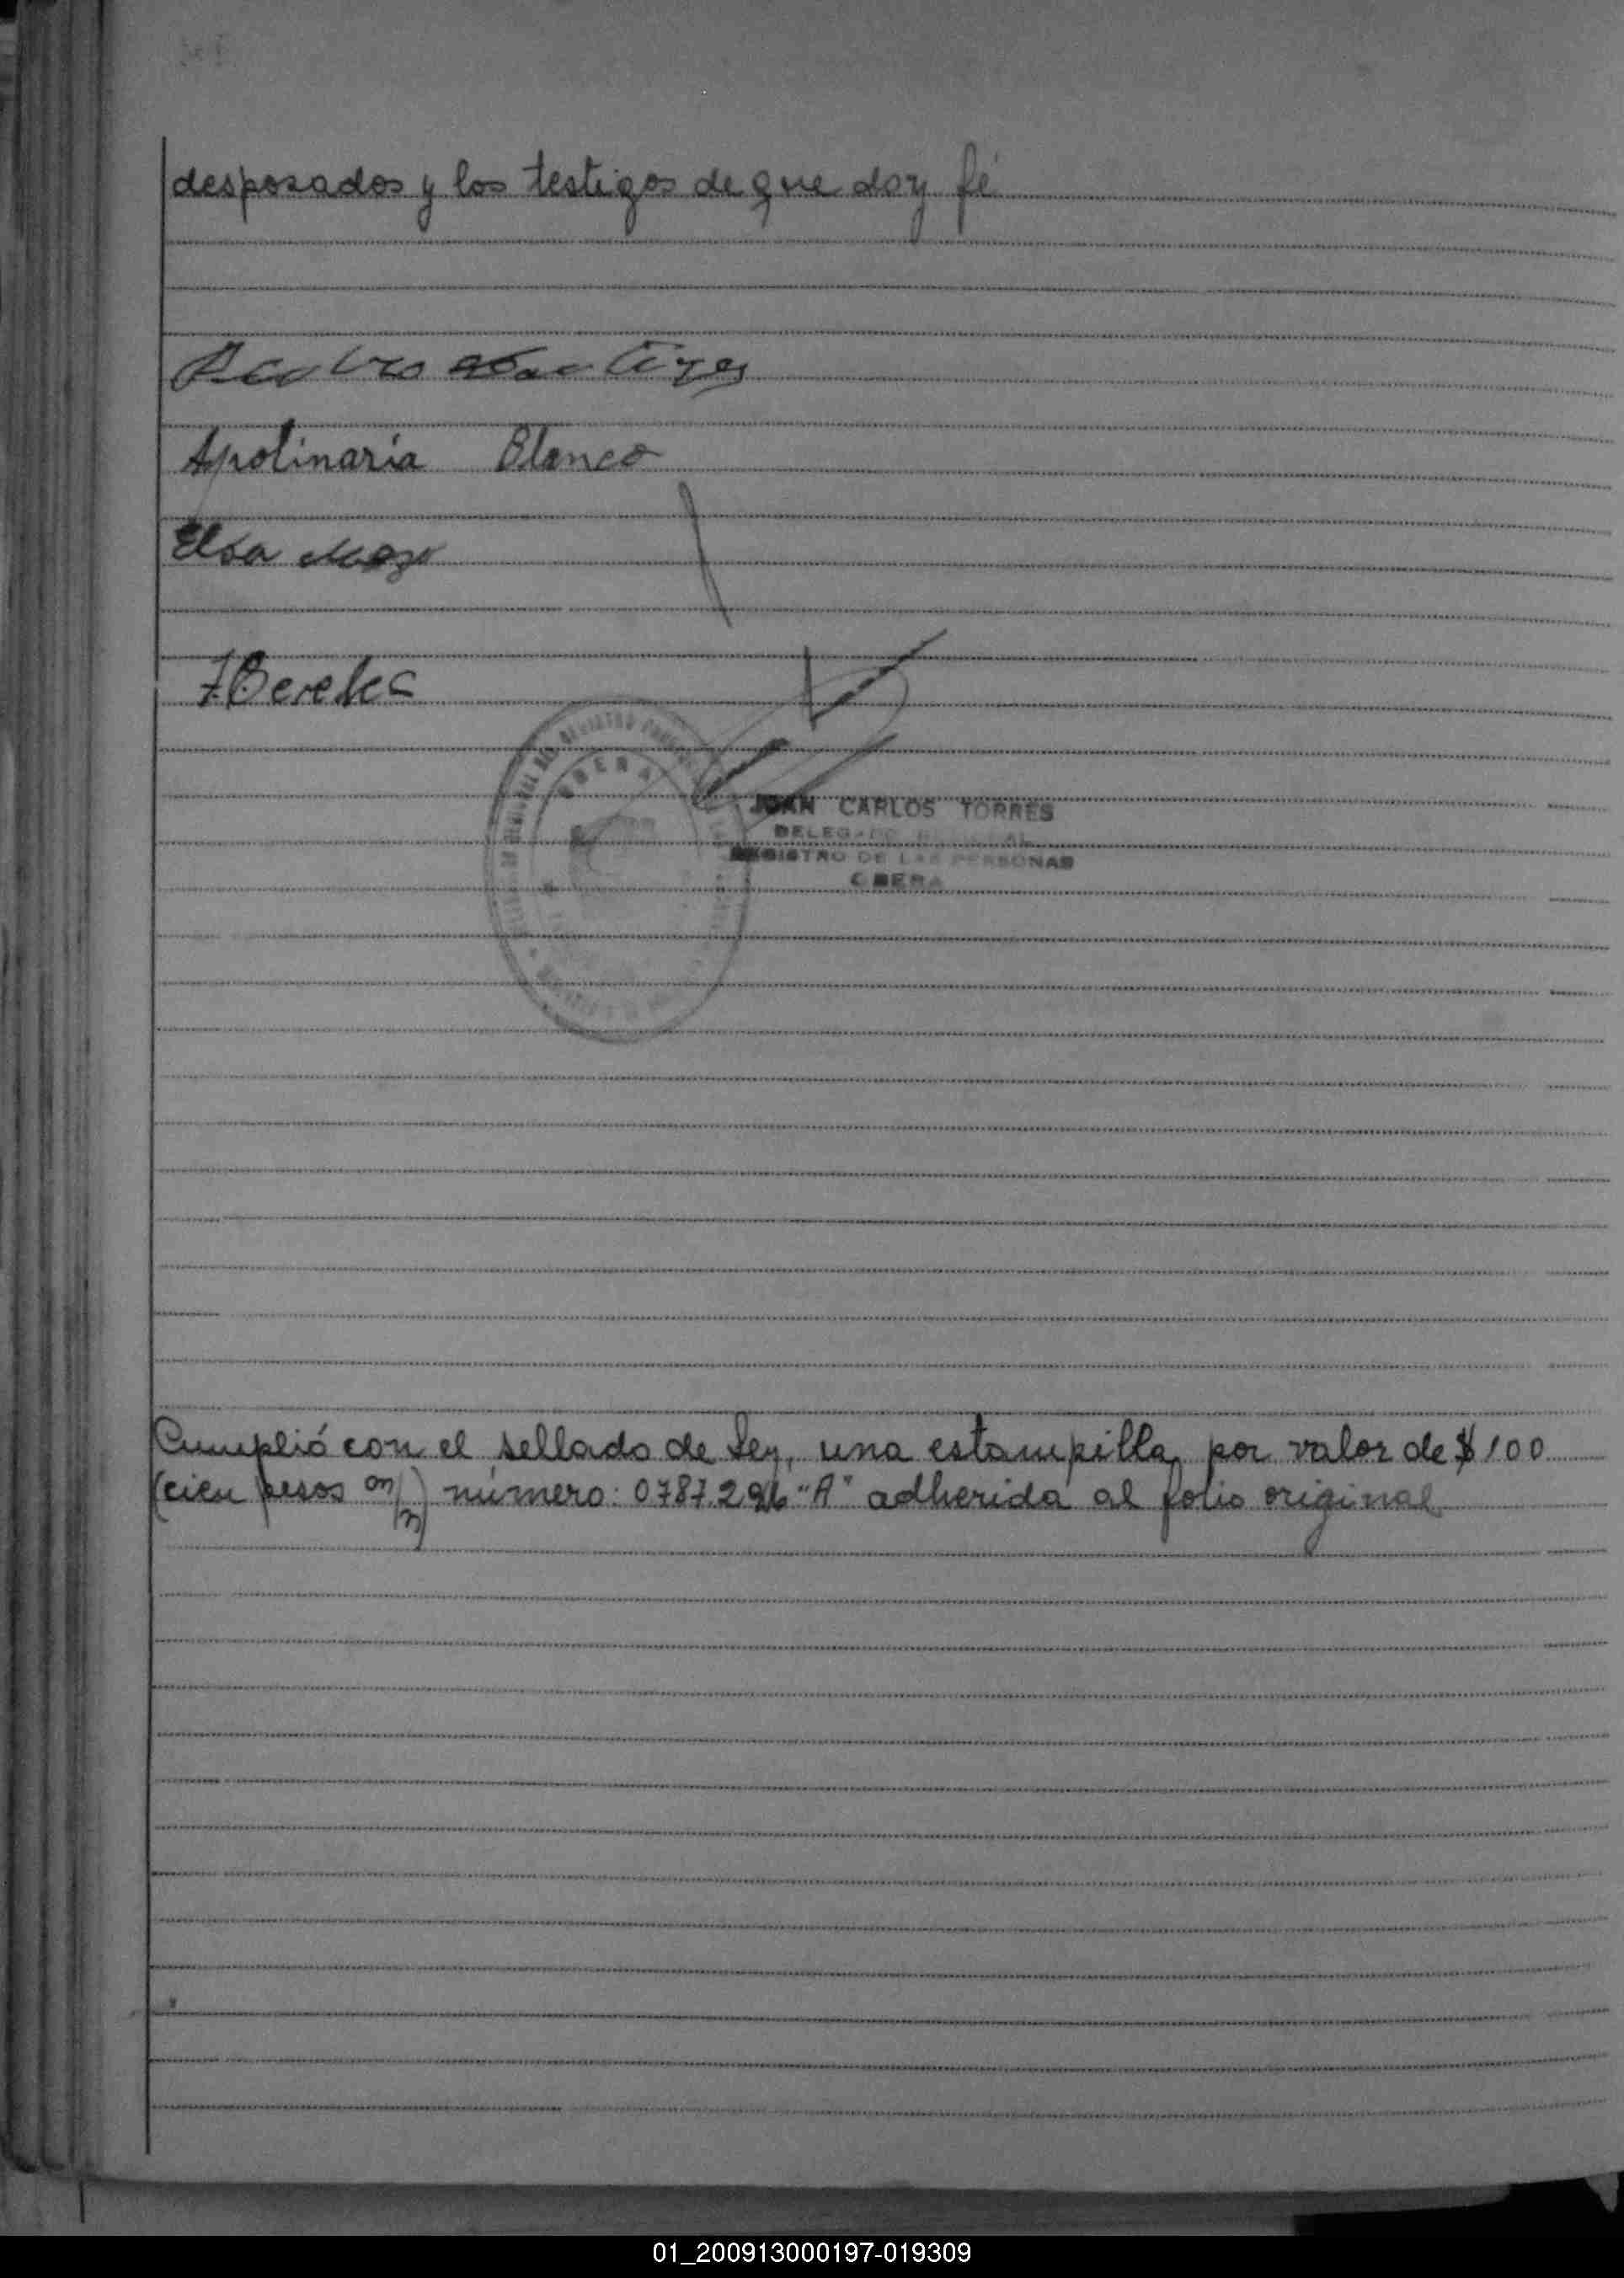 desposados y los testigos de que doy fé
Apolinaria Blanco
Elsa
OBERA
JUAN CARLOS TORRES
DELEGADO
REGISTRO DE LAS PERSONAS
OBERA
Cumplió con el sellado de Ley, una estampilla por valor de $100
(cien pesos m/n) número: 0787.296 "A" adherida al folio original
01_200913000197-019309